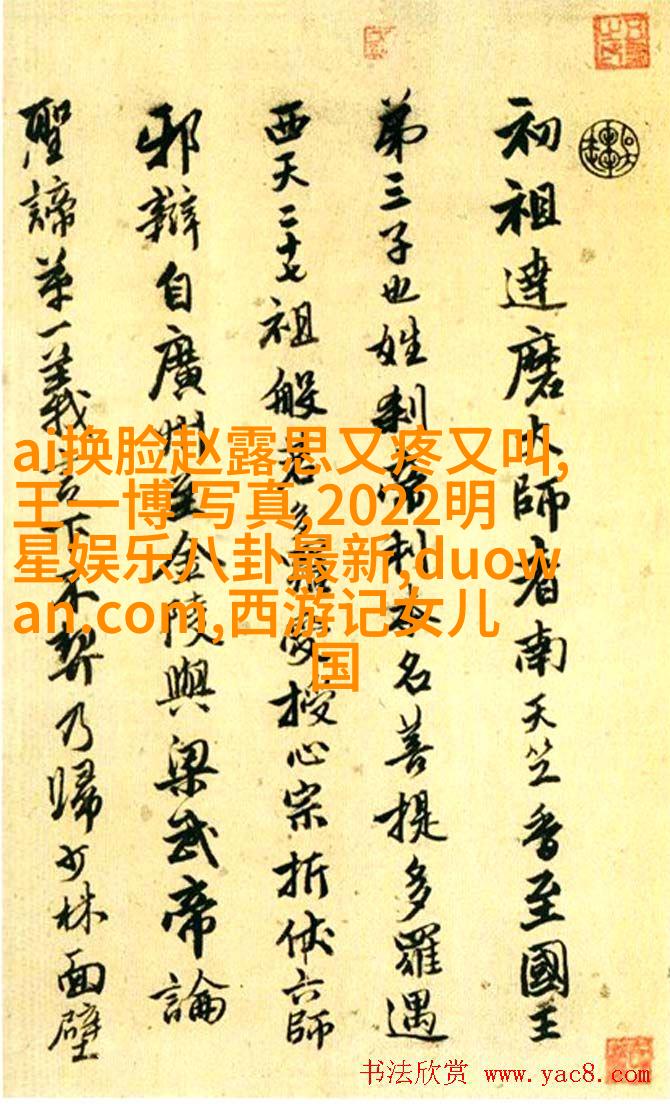 初祖達磨大師者南天竺香至國王
第三子也姓刹帝利本名菩提多羅遇
西天二十七祖般若多羅授心宗折伏六師
邪辯自廣州至金陵與梁武帝論
聖諦第一義言下不契乃歸少林面壁
ai换脸赵露思又疼又叫,
王一博 写真,2022明
星娱乐八卦最新,duow
an.com,西游记女儿
国
书法欣赏 www.yac8.com